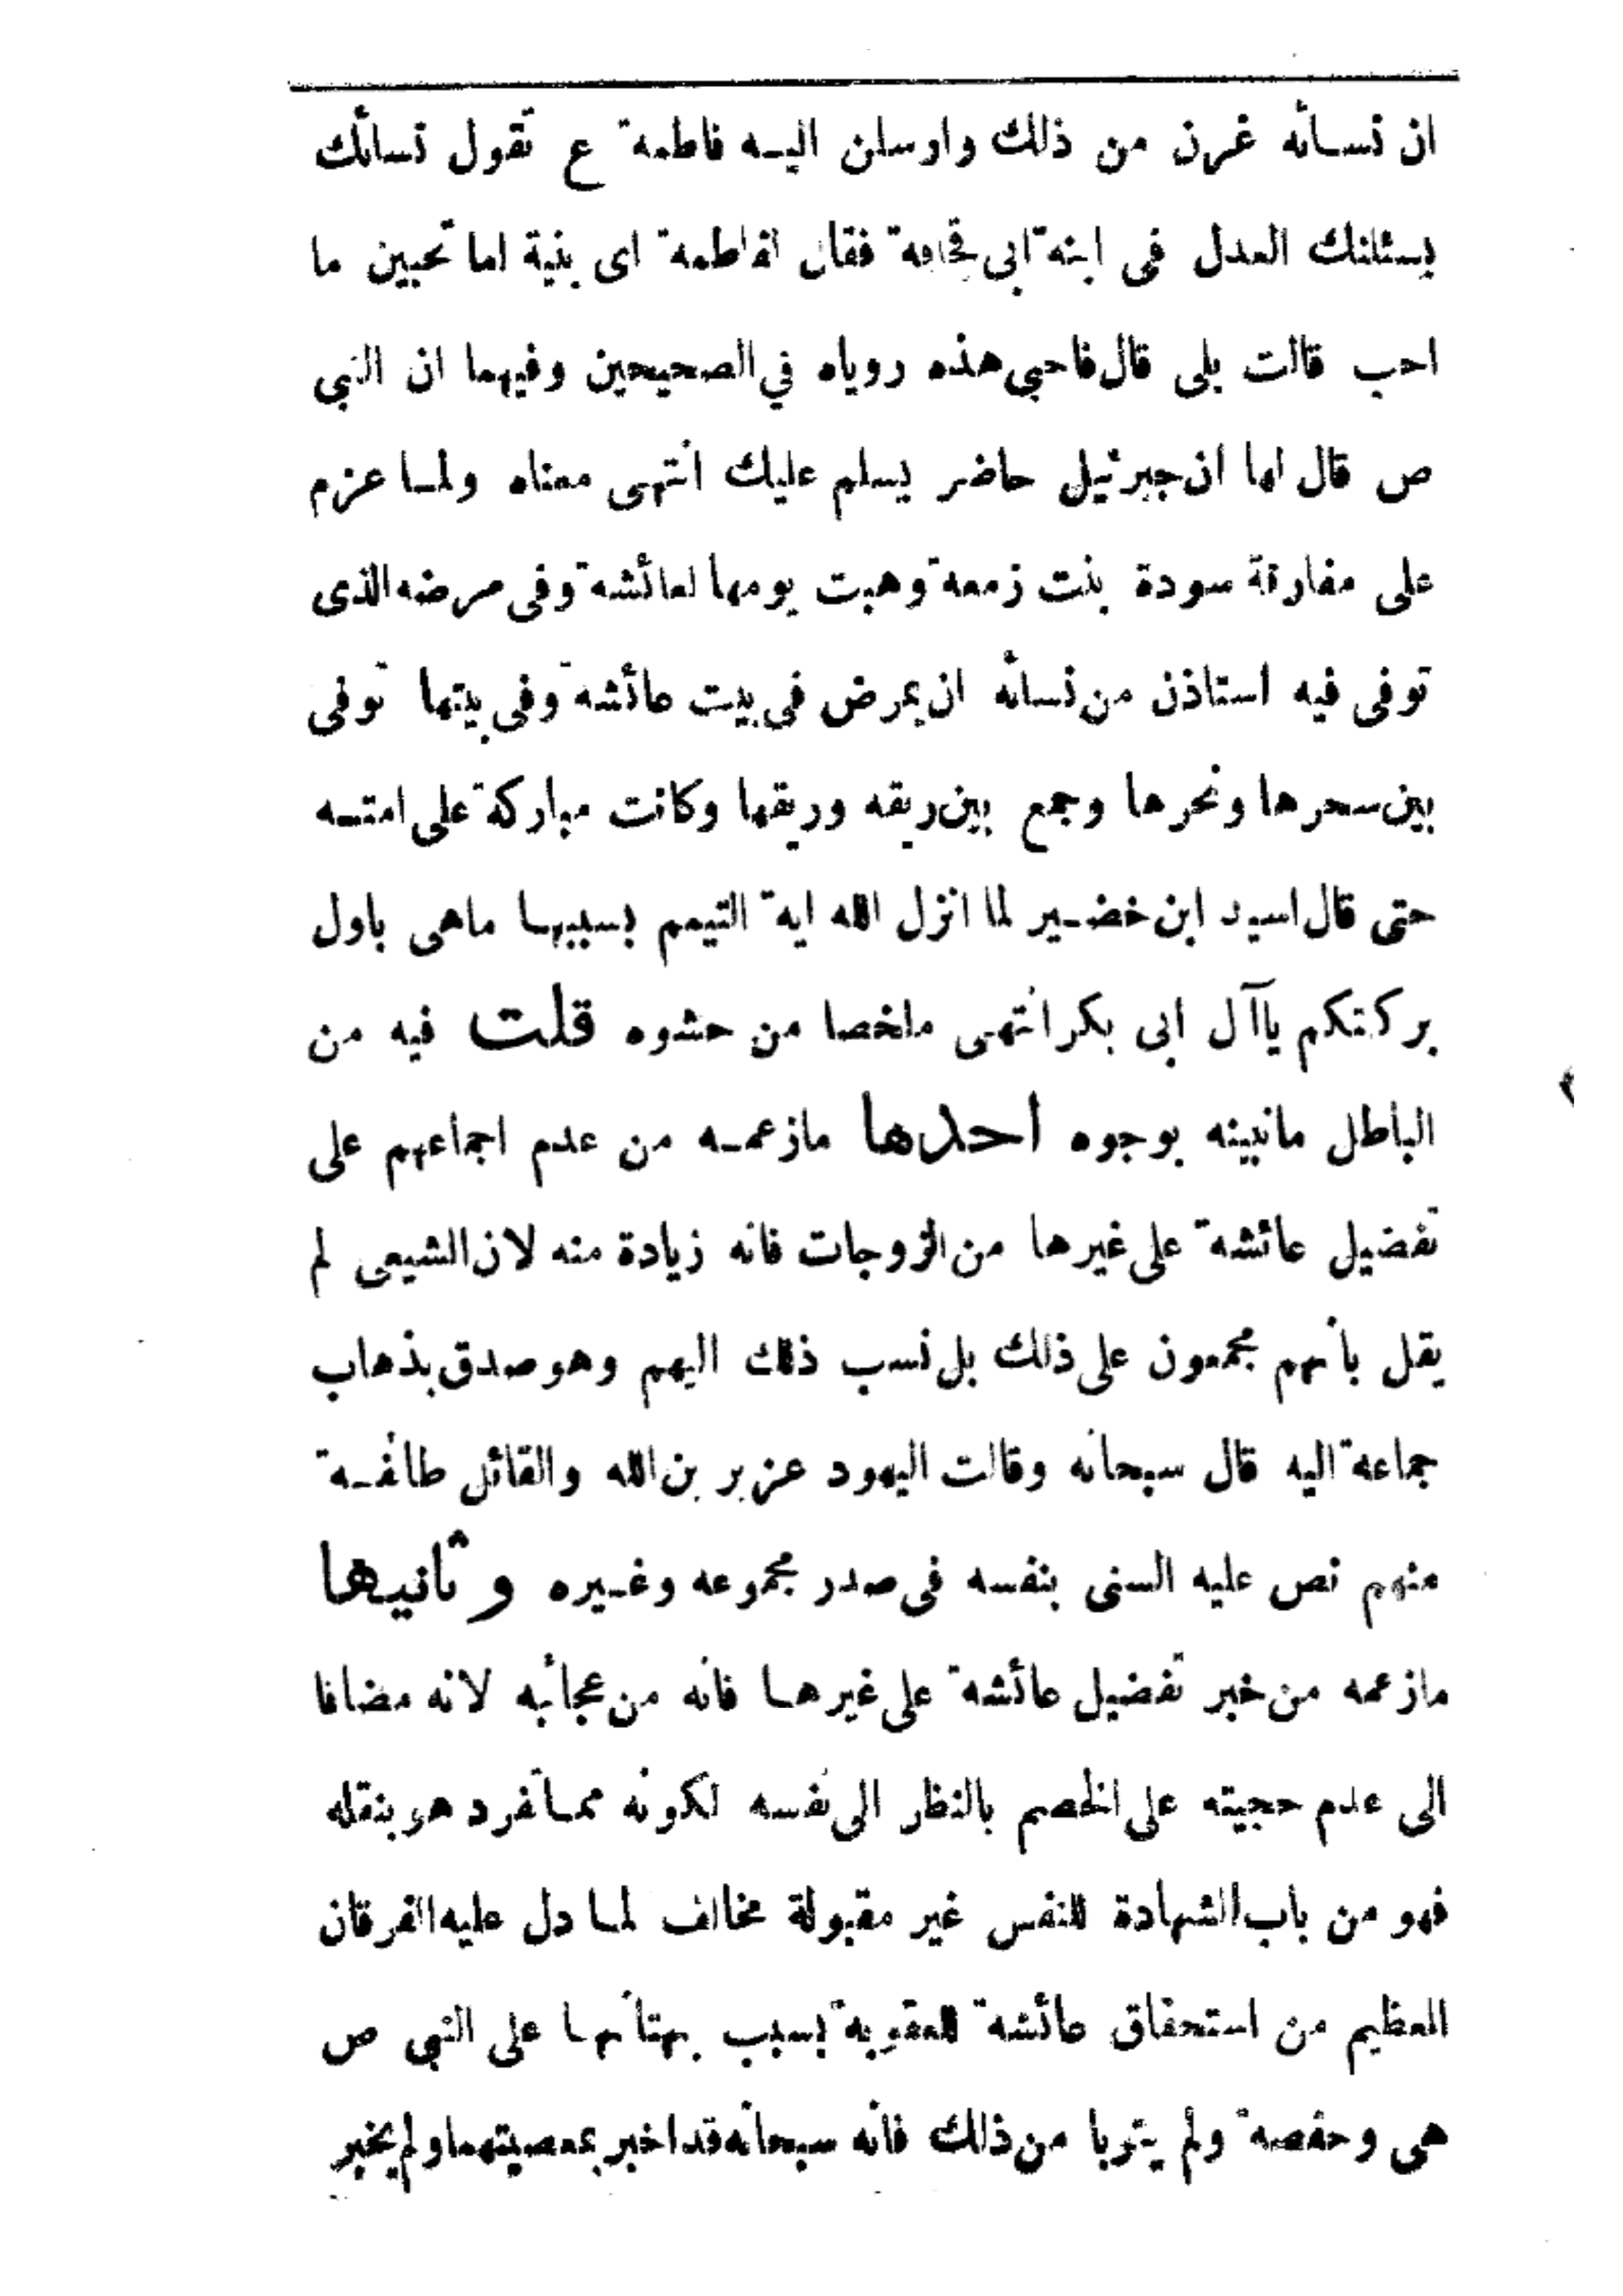 ان نسائه غرن من ذلك وارسلن اليه فاطمة ع تقول نسائك
يسئلنك العدل فى ابنة ابى قحافة فقال لفاطمة اى بنية اما تحبين ما
احب قالت بلى قال فاحبى هذه روياه في الصحيحين وفيهما ان النبي
ص قال لها ان جبرئيل حاضر يسلم عليك انتهى معناه ولما عزم
على مفارقة سودة بنت زمعة وهبت يومها لعائشة وفى مرضه الذى
توفى فيه استاذن من نسائه ان يمرض فى بيت عائشة وفى بيتها توفى
بين سحرها ونحرها وجمع بين ريقه وريقها وكانت مباركة على امته
حتى قال اسيد ابن خضير لما انزل الله اية التيمم بسببها ماهى باول
بركتكم ياآل ابى بكر انتهى ملخصا من حشوه قلت فيه من
الباطل مانبينه بوجوه احدها مازعمه من عدم اجماعهم على
تفضيل عائشة على غيرها من الزوجات فانه زيادة منه لان الشيعى لم
يقل بانهم مجمعون على ذلك بل نسب ذلك اليهم وهو صدق بذهاب
جماعة اليه قال سبحانه وقالت اليهود عزير بن الله والقائل طائفة
منهم نص عليه السنى بنفسه فى صدر مجموعه وغيره وثانيها
مازعمه من خبر تفضيل عائشة على غيرها فانه من عجائبه لانه مضافا
الى عدم حجيته على الخصم بالنظر الى نفسه لكونه مما تفرد هو بنقله
فهو من باب الشهادة للنفس غير مقبولة مخالف لما دل عليه الفرقان
العظيم من استحقاق عائشة للعقوبة بسبب بهتانها على النبى ص
هى وحفصة ولم يتوبا من ذلك فانه سبحانه قد اخبر بمعصيتهما ولم يخبر